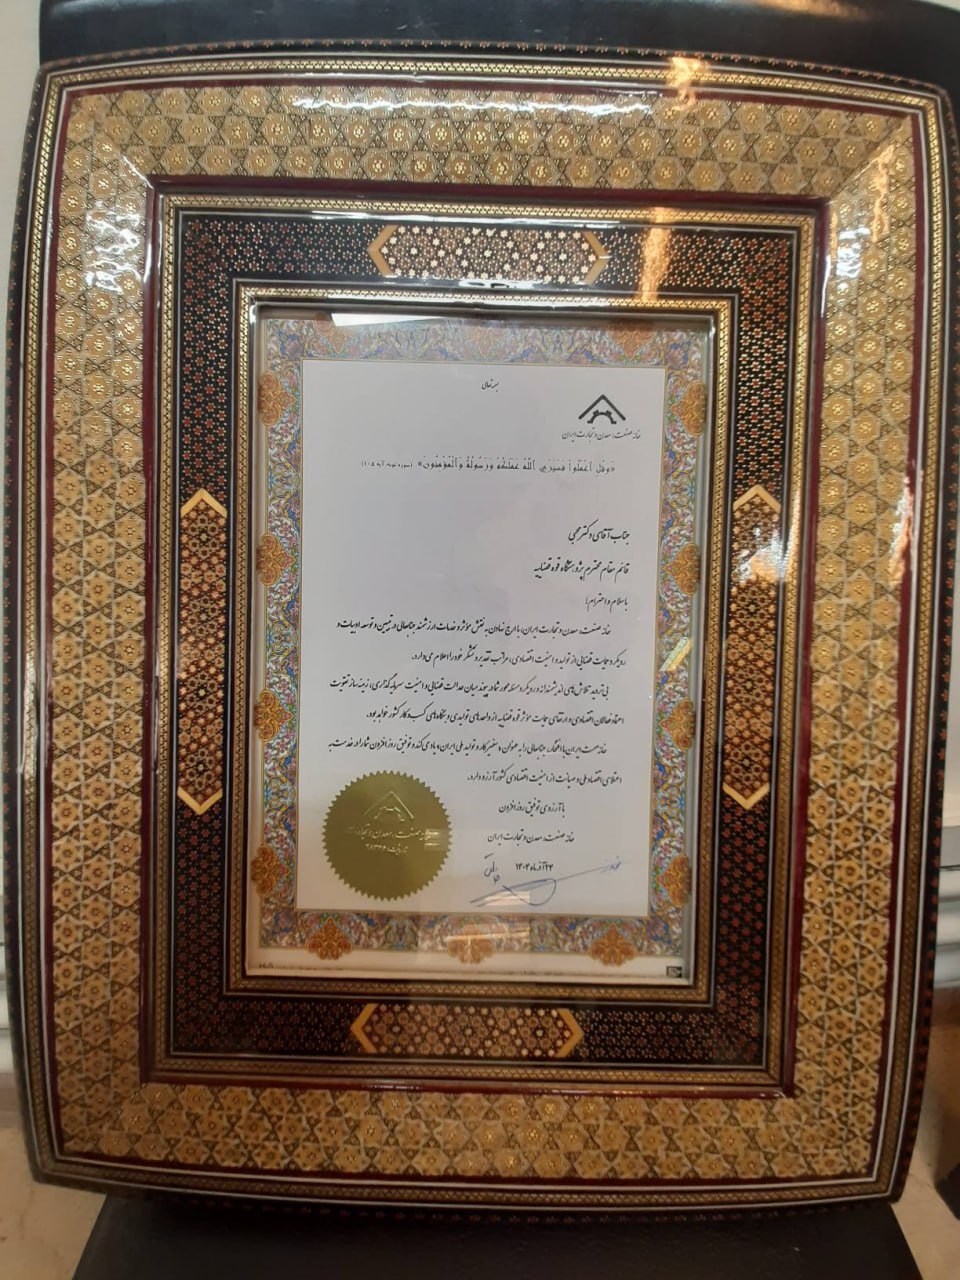 بسمه تعالی
خانه صنعت، معدن و تجارت ایران
«وَقُلِ اعْمَلُوا فَسَیَرَی اللَّهُ عَمَلَکُمْ وَرَسُولُهُ وَالْمُؤْمِنُونَ» (سوره توبه، آیه ۱۰۵)
جناب آقای دکتر محبی
قائم مقام محترم پژوهشگاه قوه قضاییه
با سلام و احترام؛
خانه صنعت، معدن و تجارت ایران، با ارج نهادن به نقش مؤثر و خدمات ارزشمند جنابعالی در تبیین و توسعه ادبیات و
رویکرد حمایت قضایی از تولید و امنیت اقتصادی، مراتب تقدیر و تشکر خود را اعلام می‌دارد.
بی‌تردید تلاش‌های اندیشمندانه و رویکرد مسئله محور شما در پیوند میان عدالت قضایی و امنیت سرمایه‌گذاری، زمینه‌ساز تقویت
اعتماد فعالان اقتصادی و ارتقای حمایت مؤثر قوه قضاییه از واحدهای تولیدی و بنگاه‌های کسب و کار کشور خواهد بود.
خانه صمت ایران با افتخار، جنابعالی را به عنوان «سفیر کار و تولید ملی ایران» یاد می‌کند و توفیق روزافزون شما را در خدمت به
اعتلای اقتصاد ملی و صیانت از امنیت اقتصادی کشور آرزو دارد.
با آرزوی توفیق روزافزون
خانه صنعت، معدن و تجارت ایران
۲۴ آذرماه ۱۴۰۴
صنعت، معدن و تجارت